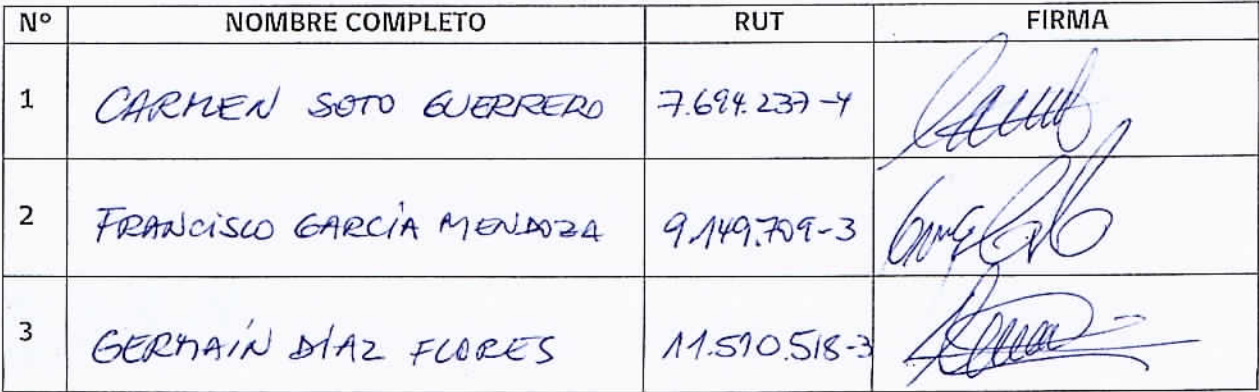 Nº NOMBRE COMPLETO RUT FIRMA
1 CARMEN SOTO GUERRERO 7.694.237-4
2 FRANCISCO GARCÍA MENDOZA 9.149.709-3
3 GERMAÍN DÍAZ FLORES 11.510.518-3